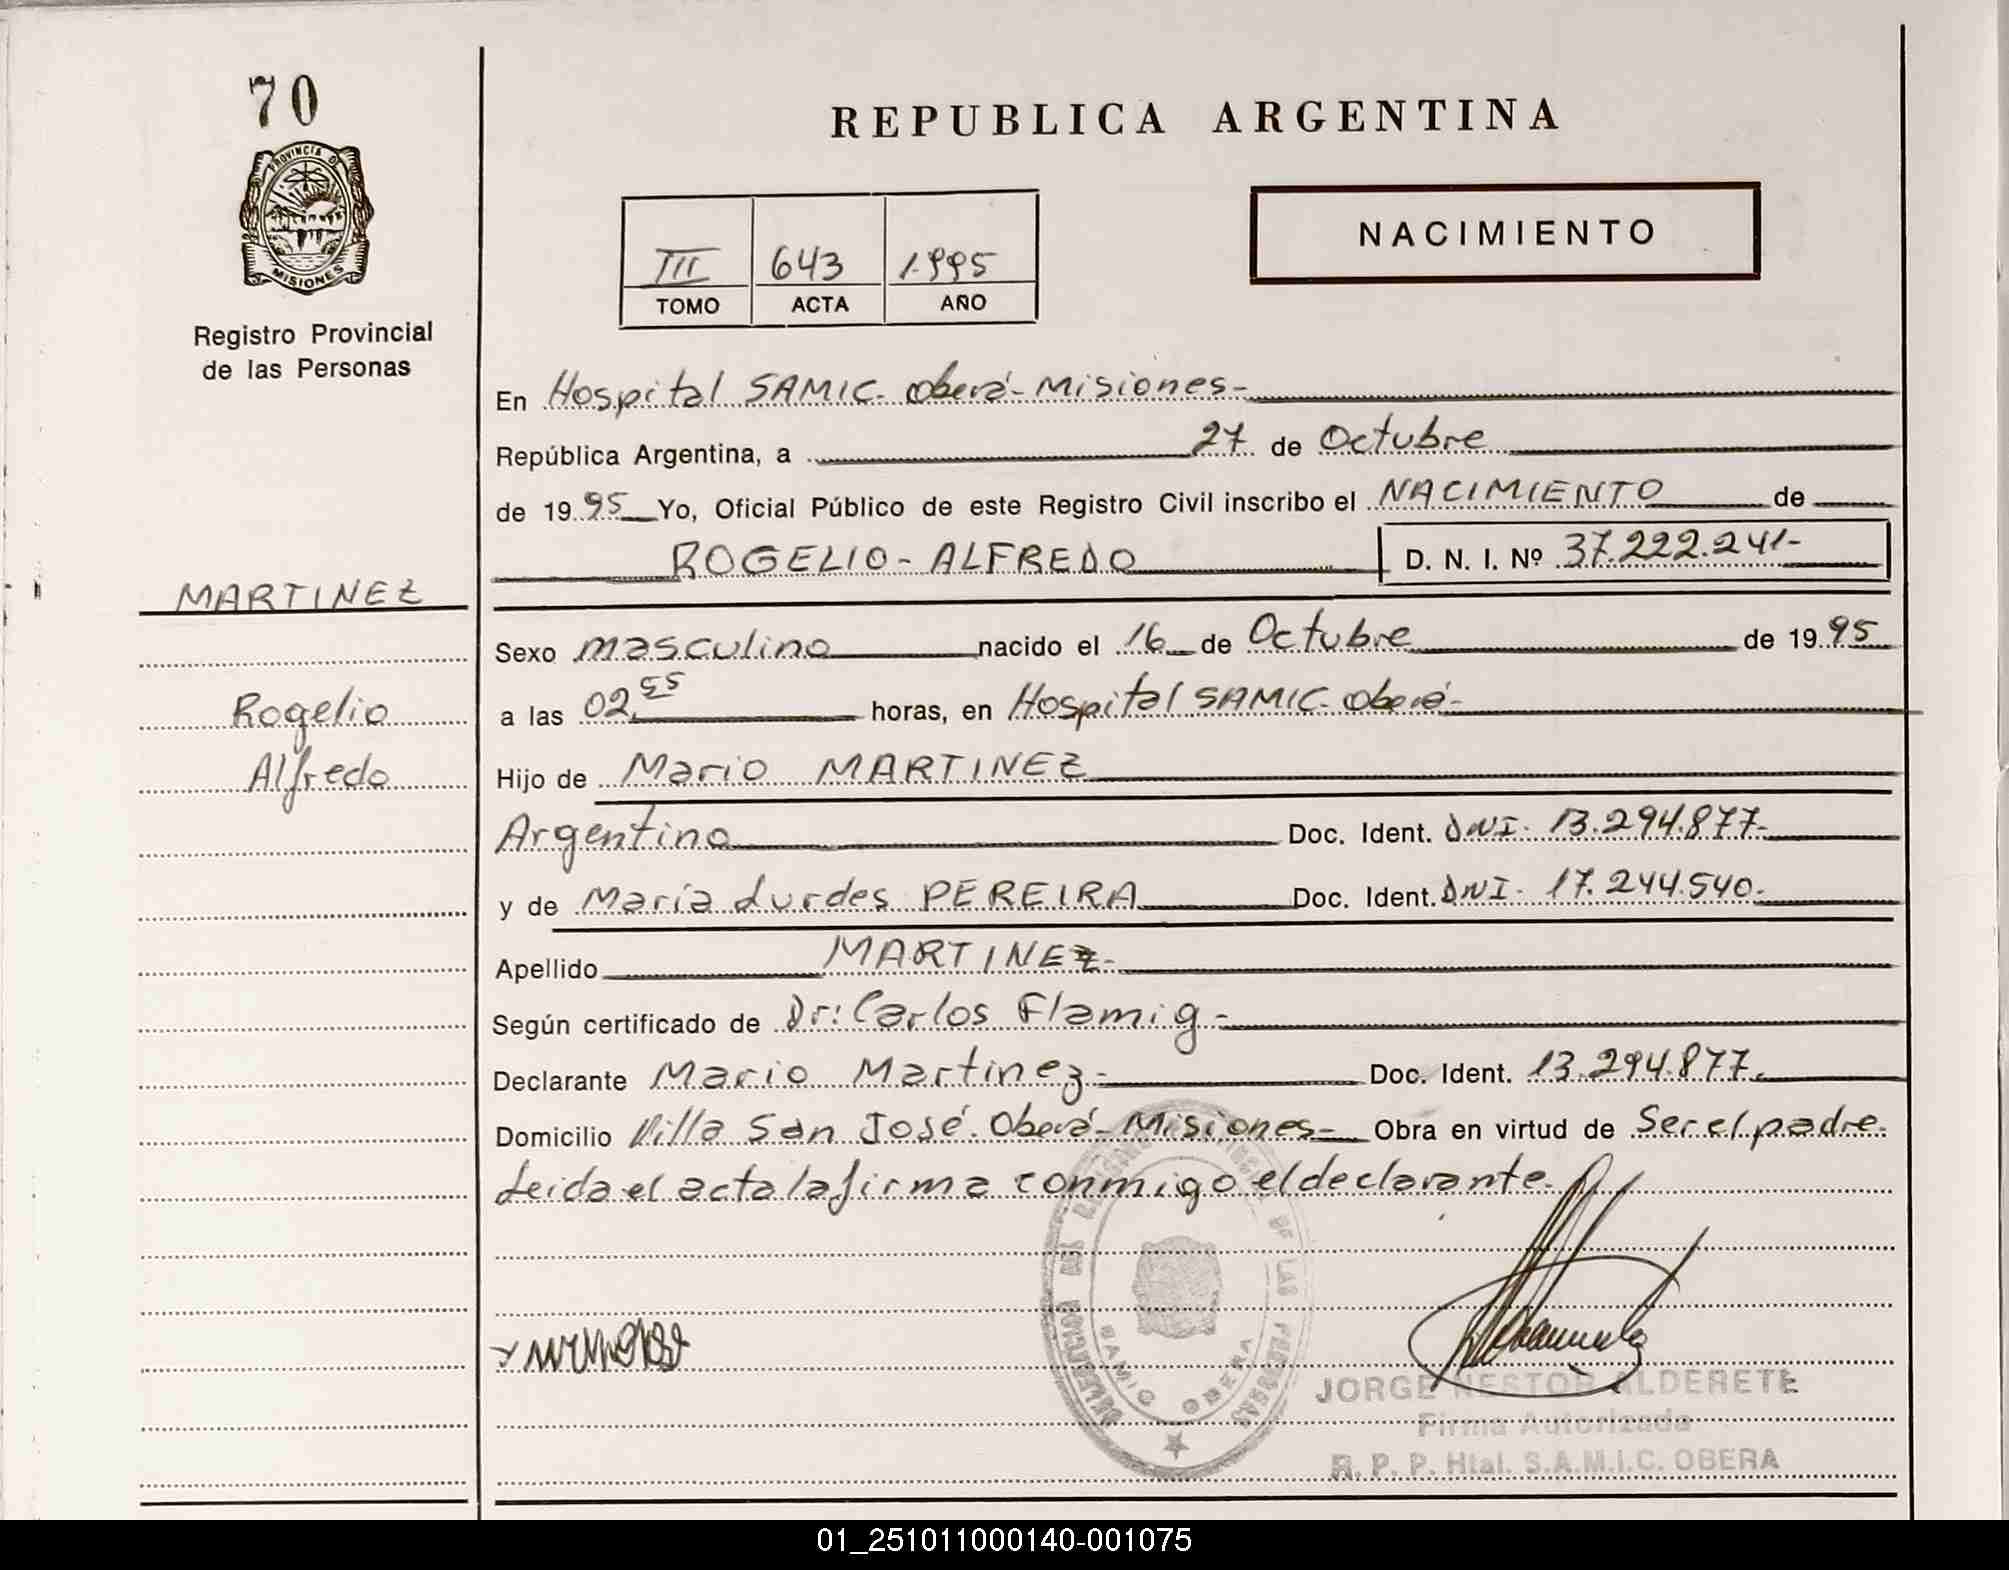 70
PROVINCIA DE
MISIONES
Registro Provincial
de las Personas
MARTINEZ
Rogelio
Alfredo
REPUBLICA ARGENTINA
III 643 1.995
TOMO ACTA AÑO
NACIMIENTO
En Hospital SAMIC. Oberá-Misiones-
República Argentina, a 27 de Octubre
de 19 95 Yo, Oficial Público de este Registro Civil inscribo el NACIMIENTO de
ROGELIO-ALFREDO D. N. I. Nº 37.222.241-
Sexo masculino nacido el 16 de Octubre de 19 95
a las 02,55 horas, en Hospital SAMIC. Oberá-
Hijo de Mario MARTINEZ
Argentino Doc. Ident. DNI. 13.294.877-
y de María Lurdes PEREIRA Doc. Ident. DNI. 17.244.540.
Apellido MARTINEZ-
Según certificado de Dr: Carlos Flamig-
Declarante Mario Martinez- Doc. Ident. 13.294.877.
Domicilio Villa San José. Oberá-Misiones- Obra en virtud de Ser el padre.
Leida el acta la firma conmigo el declarante.
DE LAS PERSONAS
SAMIC OBERA
JORGE NESTOR ALDERETE
Firma Autorizada
R. P. P. Htal. S.A.M.I.C. OBERA
01_251011000140-001075